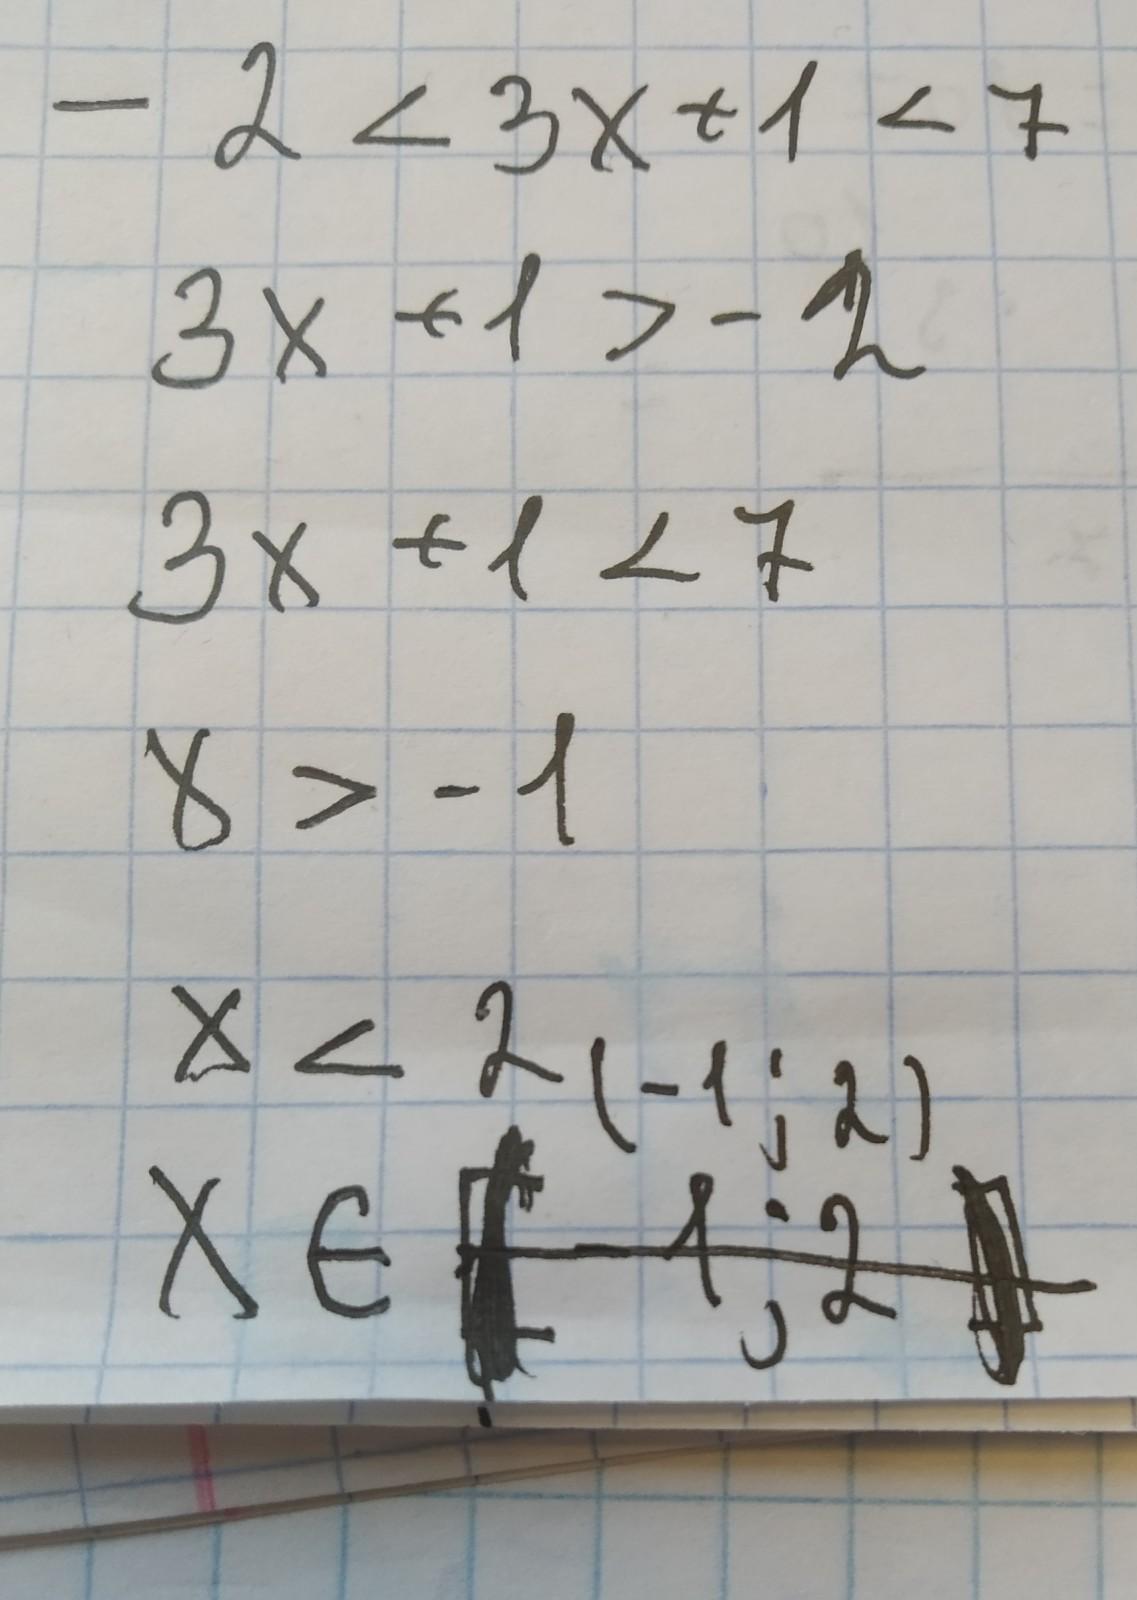 - 2 < 3x + 1 < 7
3x + 1 > - 2
3x + 1 < 7
x > - 1
x < 2
(-1; 2)
x ∈ [-1; 2]